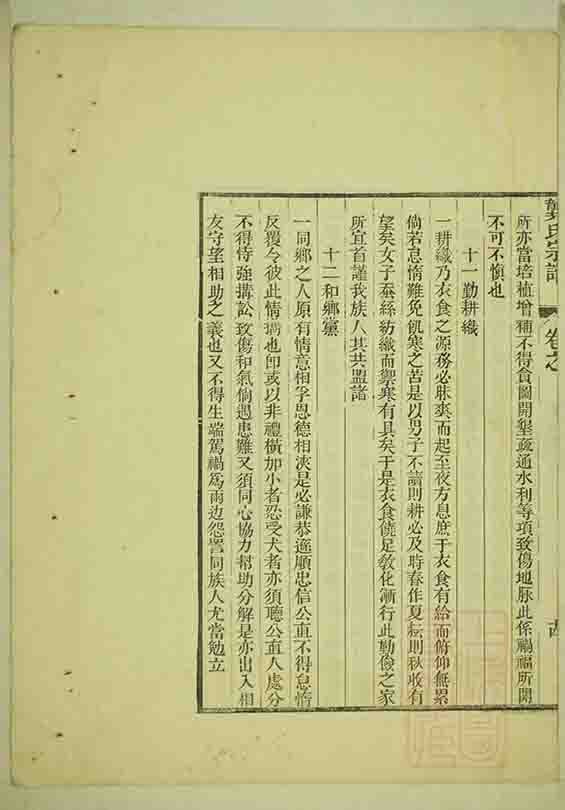 龔氏宗譜
卷之
所亦當培植增補不得貪圖開墾疏通水利等項致傷地脉此係禍福所關
不可不愼也
十一勤耕織
一耕織乃衣食之源務必昧爽而起至夜方息庶于衣食有給而俯仰無累
倘若怠惰難免飢寒之苦是以男子不讀則耕必及時春作夏耘則秋收有
望矣女子蚕絲紡織而禦寒有具矣于是衣食饒足敎化漸行此勤儉之家
所宜首謹我族人其共盟諸
十二和鄉黨
一同鄉之人原有情意相孚恩德相浹是必謙恭遜順忠信公直不得怠惰
反覆令彼此情 也卽或以非禮橫加小者忍受大者亦須聽公直人處分
不得恃強搆訟致傷和氣倘遇患難又須同心協力幫助分解是亦出入相
友守望相助之義也又不得生端駕禍爲兩边怨 同族人尤當勉立